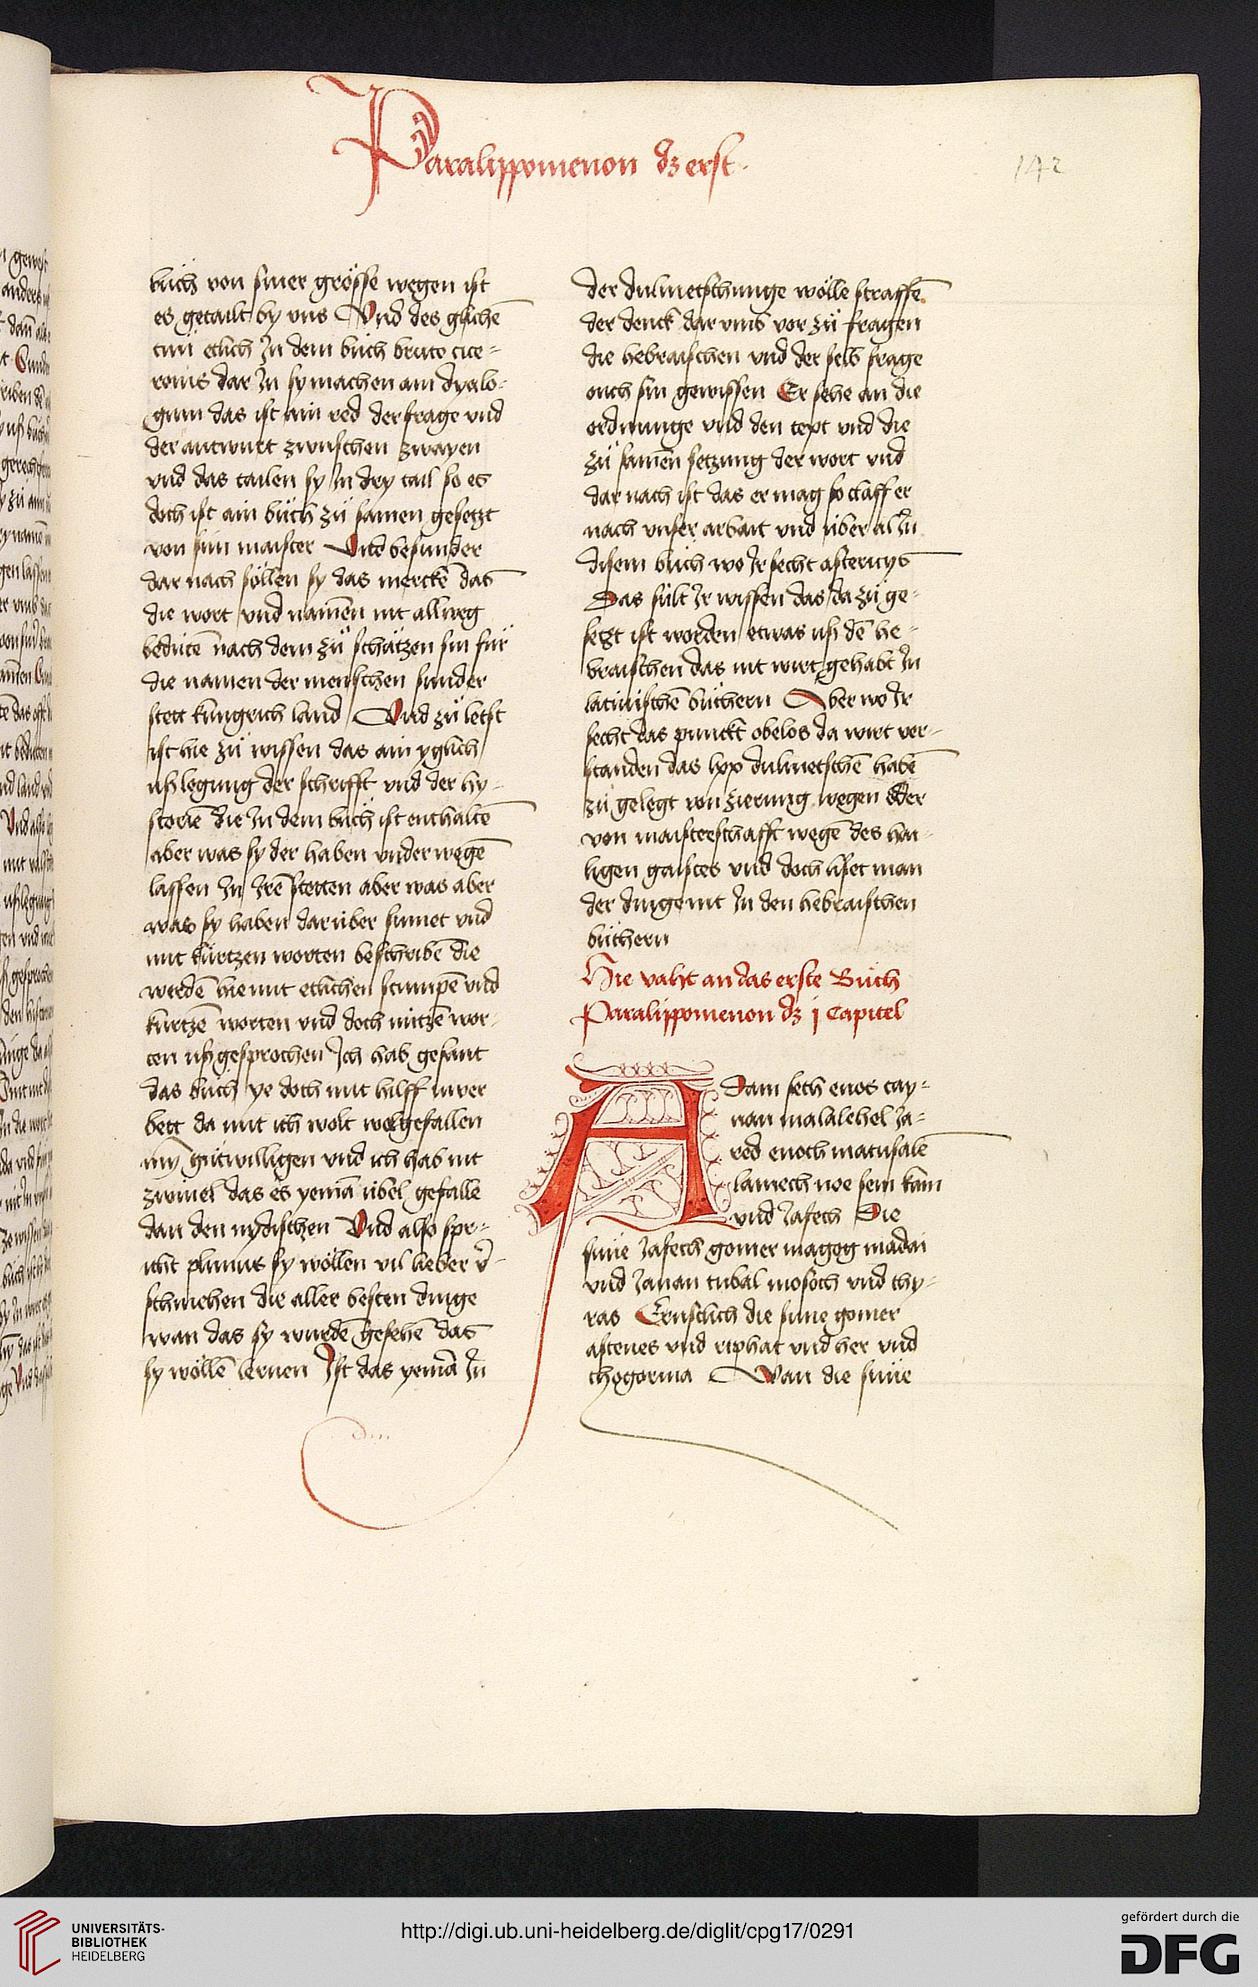 Paralippomenon dz erst
142
bůch von siner grösse wegen ist
es getailt by vns Vnd des glichē
tun etlich In dem bůch bruto cice-
ronis dar In sy machen ain dyalo-
gum das ist ain red der frage vnd
der antwurt zwuschen zwayen
vnd das tailen sy In dry tail so es
doch ist ain bůch zů samen gesetzt
von sim maister Vnd besunder
dar nach söllen sy das merckē das
die wort vnd namen nit allweg
bedutē nach dem zů schätzen sin für
die namen der menschen sunder
stett kungrich land Vnd zů letst
ist hie zů wissen das ain yglich
uslegung der schrifft vnd der hy-
storiē die In dem bůch ist enthaltē
aber was sy der haben vnder wegē
lassen In Irē stetten aber was aber
was sy haben darüber sumet vnd
mit kurtzen worten beschribē die
werdē hie mit etlichen stumpē vnd
kurtzē worten vnd doch nützē wor-
ten us gesprochen Ich hab gesant
das bůch ye doch mit hilff uwer
bett da mit ich wolt wolgefallen
my gůtwilligen vnd ich hab nit
zwinel das es yemā übel gefalle
dan den nydischen Vnd also spr-
icht plinius sy wöllen vil lieber v̄-
schmehen die aller besten dinge
wan das sy wurdē gesehē das
sy wöllē lernen Ist das yemā In
der dulmetschunge wölle straffē
der denck dar vmb vor zů fragen
die hebraischen vnd der selb frage
ouch sin gewissen Er sehe an die
ordnunge vnd den text vnd die
zů samen setzung der wort vnd
dar nach ist das er mag so claff er
nach vnser arbait vnd über al In
disem bůch wo Ir secht astericys
Das sült Ir wissen das da zů ge-
setzt ist worden etwas us dē he-
braischen das nit wirt gehabt In
latinischē büchern Aber wo Ir
secht das punckt obelos da wirt ver-
standen das lxx dulmetschē habē
zů gelegt von zierung wegen oder
von maisterschafft wegē des hai-
ligen gaistes vnd doch liset man
der dinge nit In den hebraischen
büchern
Hie vaht an das erste Bůch
Paralippomenon dz j Capitel
Adam seth enos cay-
nan malalehel Ja-
red enoch matusalē
lamech noe sem kam
vnd Jafech Die
sune Jafech gomer magog madai
vnd Janan tubal mosoch vnd thy-
ras Ernstlich die sune gomer
astenes vnd riphat vnd her vnd
thogorma Wan die sune
UNIVERSITÄTS-
BIBLIOTHEK
HEIDELBERG
http://digi.ub.uni-heidelberg.de/diglit/cpg17/0291
gefördert durch die
DFG